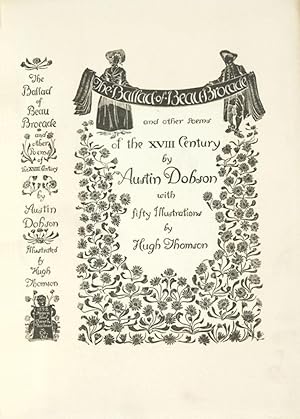 The
Ballad
of
Beau
Brocade
and
other
Poems
of
The XVIII Century
by
Austin
Dobson
Illustrated
by
Hugh
Thomson
The Ballad of Beau Brocade
and other Poems
of the XVIII Century
by
Austin Dobson
with
fifty Illustrations
by
Hugh Thomson